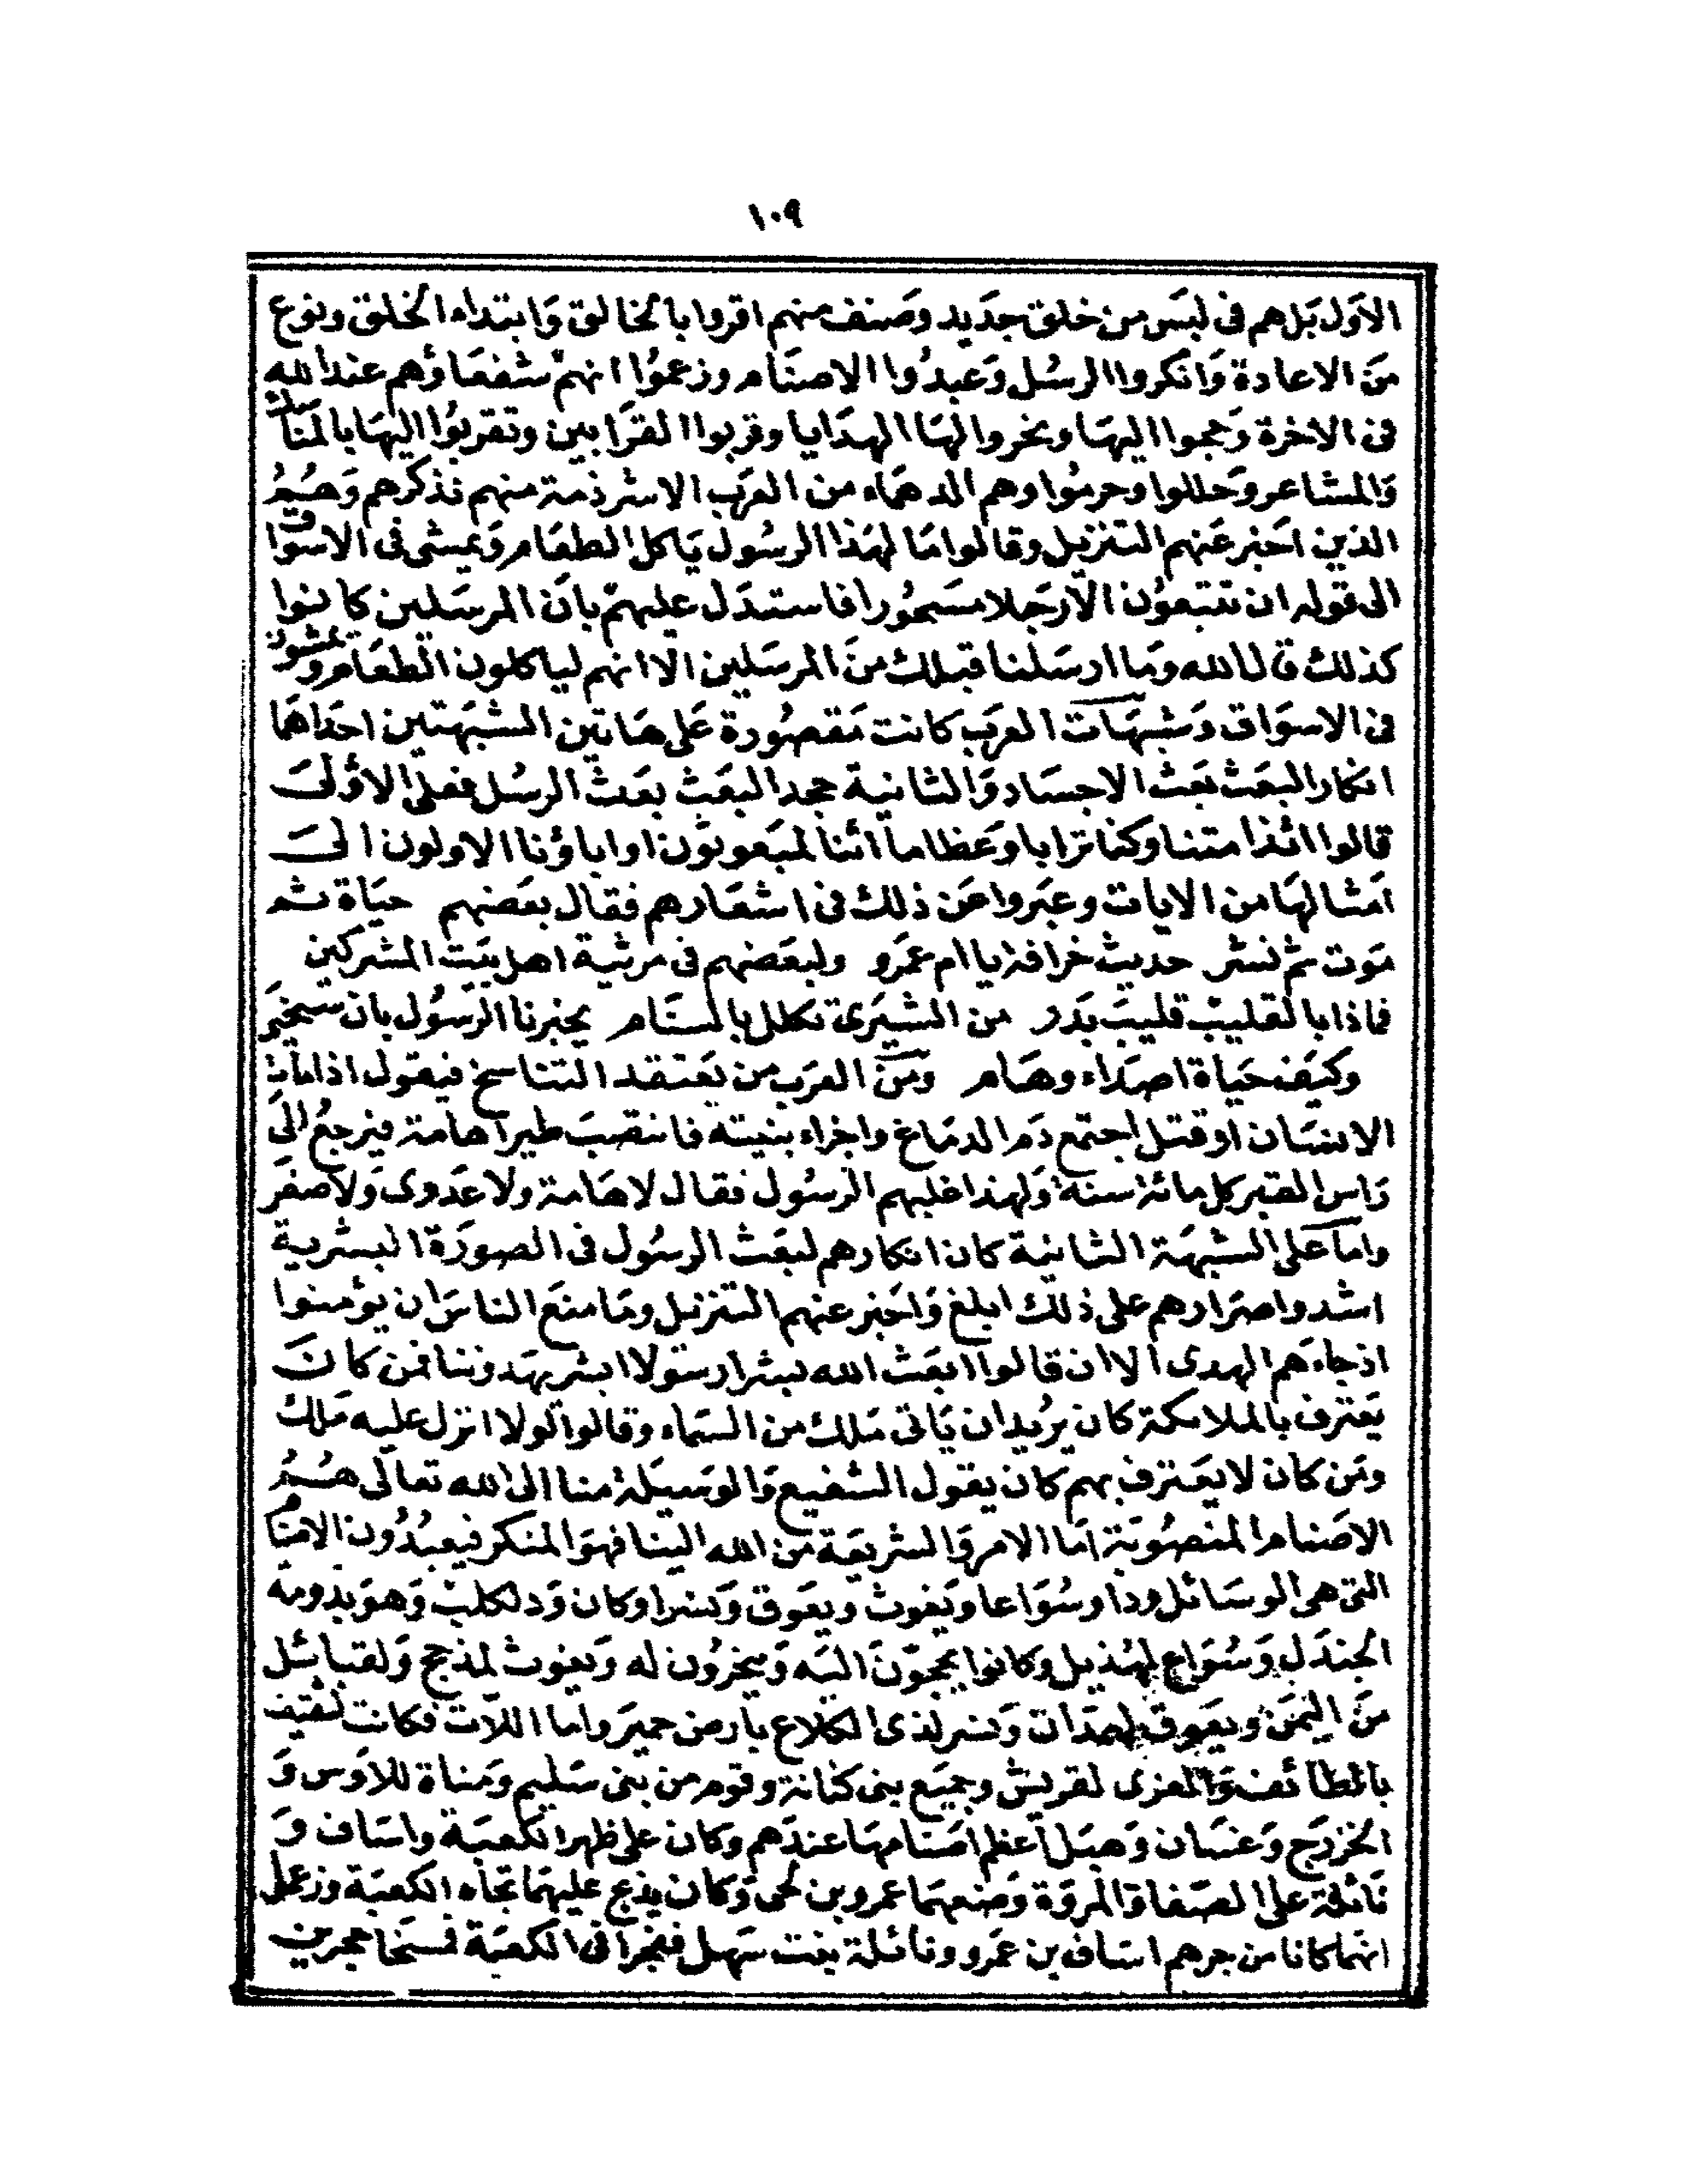 ١٠٩
الاول بل هم فى لبس من خلق جديد وصنف منهم اقروا بالخالق وابتداء الخلق ونوع
من الاعادة وانكروا الرسل وعبدوا الاصنام وزعموا انهم شفعاؤهم عند الله
فى الاخرة وحجوا اليها ونحروا لها الهدايا وقربوا القرابين وتقربوا اليها بالمناسك
والمشاعر وحللوا وحرموا وهم الدهماء من العرب الا شرذمة منهم نذكرهم وهم
الذين اخبر عنهم التنزيل وقالوا ما لهذا الرسول ياكل الطعام ويمشى فى الاسواق
الى قوله ان تتبعون الا رجلا مسحورا فاستدل عليهم بان المرسلين كانوا
كذلك قال الله وما ارسلنا قبلك من المرسلين الا انهم لياكلون الطعام ويمشون
فى الاسواق وشبهات العرب كانت مقصورة على هاتين الشبهتين احداها
انكار البعث بعث الاجساد والثانية جحد البعث بعث الرسل فعلى الاولى
قالوا ائذا متنا وكنا ترابا وعظاما ائنا لمبعوثون اواباؤنا الاولون الى
امثالها من الايات وعبروا عن ذلك فى اشعارهم فقال بعضهم حياة ثم
موت ثم نشر حديث خرافة يا ام عمرو ولبعضهم فى مرثية اهل بيت المشركين
فماذا بالقليب قليب بدر من الشيزى تكلل بالسنام يخبرنا الرسول بان سنحيى
وكيف حياة اصداء وهام ومن العرب من يعتقد التناسخ فيقول اذا مات
الانسان او قتل اجتمع دم الدماغ واجزاء بنيته فانتصب طيرا هامة فيرجع الى
راس القبر كل مائة سنة ولهذا غلبهم الرسول فقال لا هامة ولا عدوى ولا صفر
واما على الشبهة الثانية كان انكارهم لبعث الرسول فى الصورة البشرية
اشد واصرارهم على ذلك ابلغ واخبر عنهم التنزيل وما منع الناس ان يؤمنوا
اذ جاءهم الهدى الا ان قالوا ابعث الله بشرا رسولا ابشر يهدوننا فمن كان
يعترف بالملائكة كان يريد ان ياتى ملك من السماء وقالوا لولا انزل عليه ملك
ومن كان لا يعترف بهم كان يقول الشفيع والوسيلة منا الى الله تعالى هم
الاصنام المنصوبة اما الامر والشريعة من الله الينا فهو المنكر فيعبدون الاصنام
التى هى الوسائل ودا وسواعا ويغوث ويعوق ونسرا وكان ود لكلب وهو بدومة
الجندل وسواع لهذيل وكانوا يحجون اليه وينحرون له ويغوث لمذحج ولقبائل
من اليمن ويعوق لهمدان ونسر لذى الكلاع بارض حمير واما اللات فكانت لثقيف
بالطائف والعزى لقريش وجميع بنى كنانة وقوم من بنى سليم ومناة للاوس و
الخزرج وغسان وهبل اعظم اصنامها عندهم وكان على ظهر الكعبة واساف و
نائلة على الصفا والمروة وضعهما عمرو بن لحى وكان يذبح عليهما تجاه الكعبة وزعم
انهما كانا من جرهم اساف بن عمرو ونائلة بنت سهل ففجرا فى الكعبة فمسخا حجرين